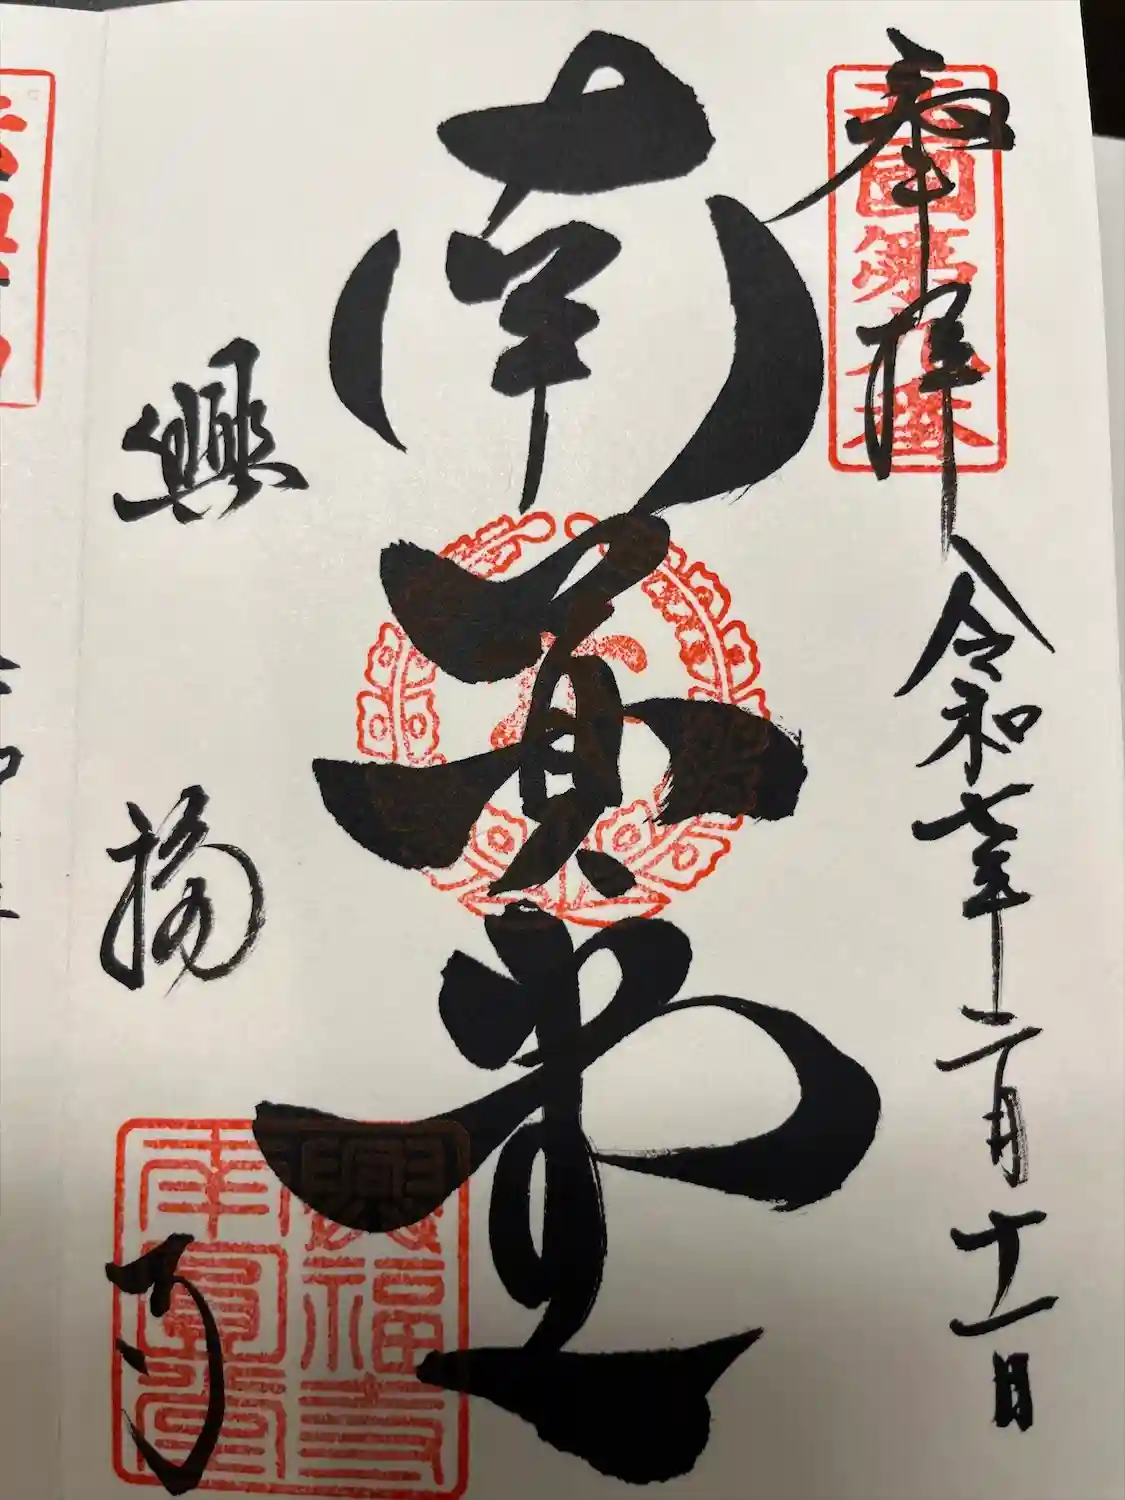 奉拝
西国第九番
令和七年二月十一日
南円堂
興福寺
興福寺
南円堂